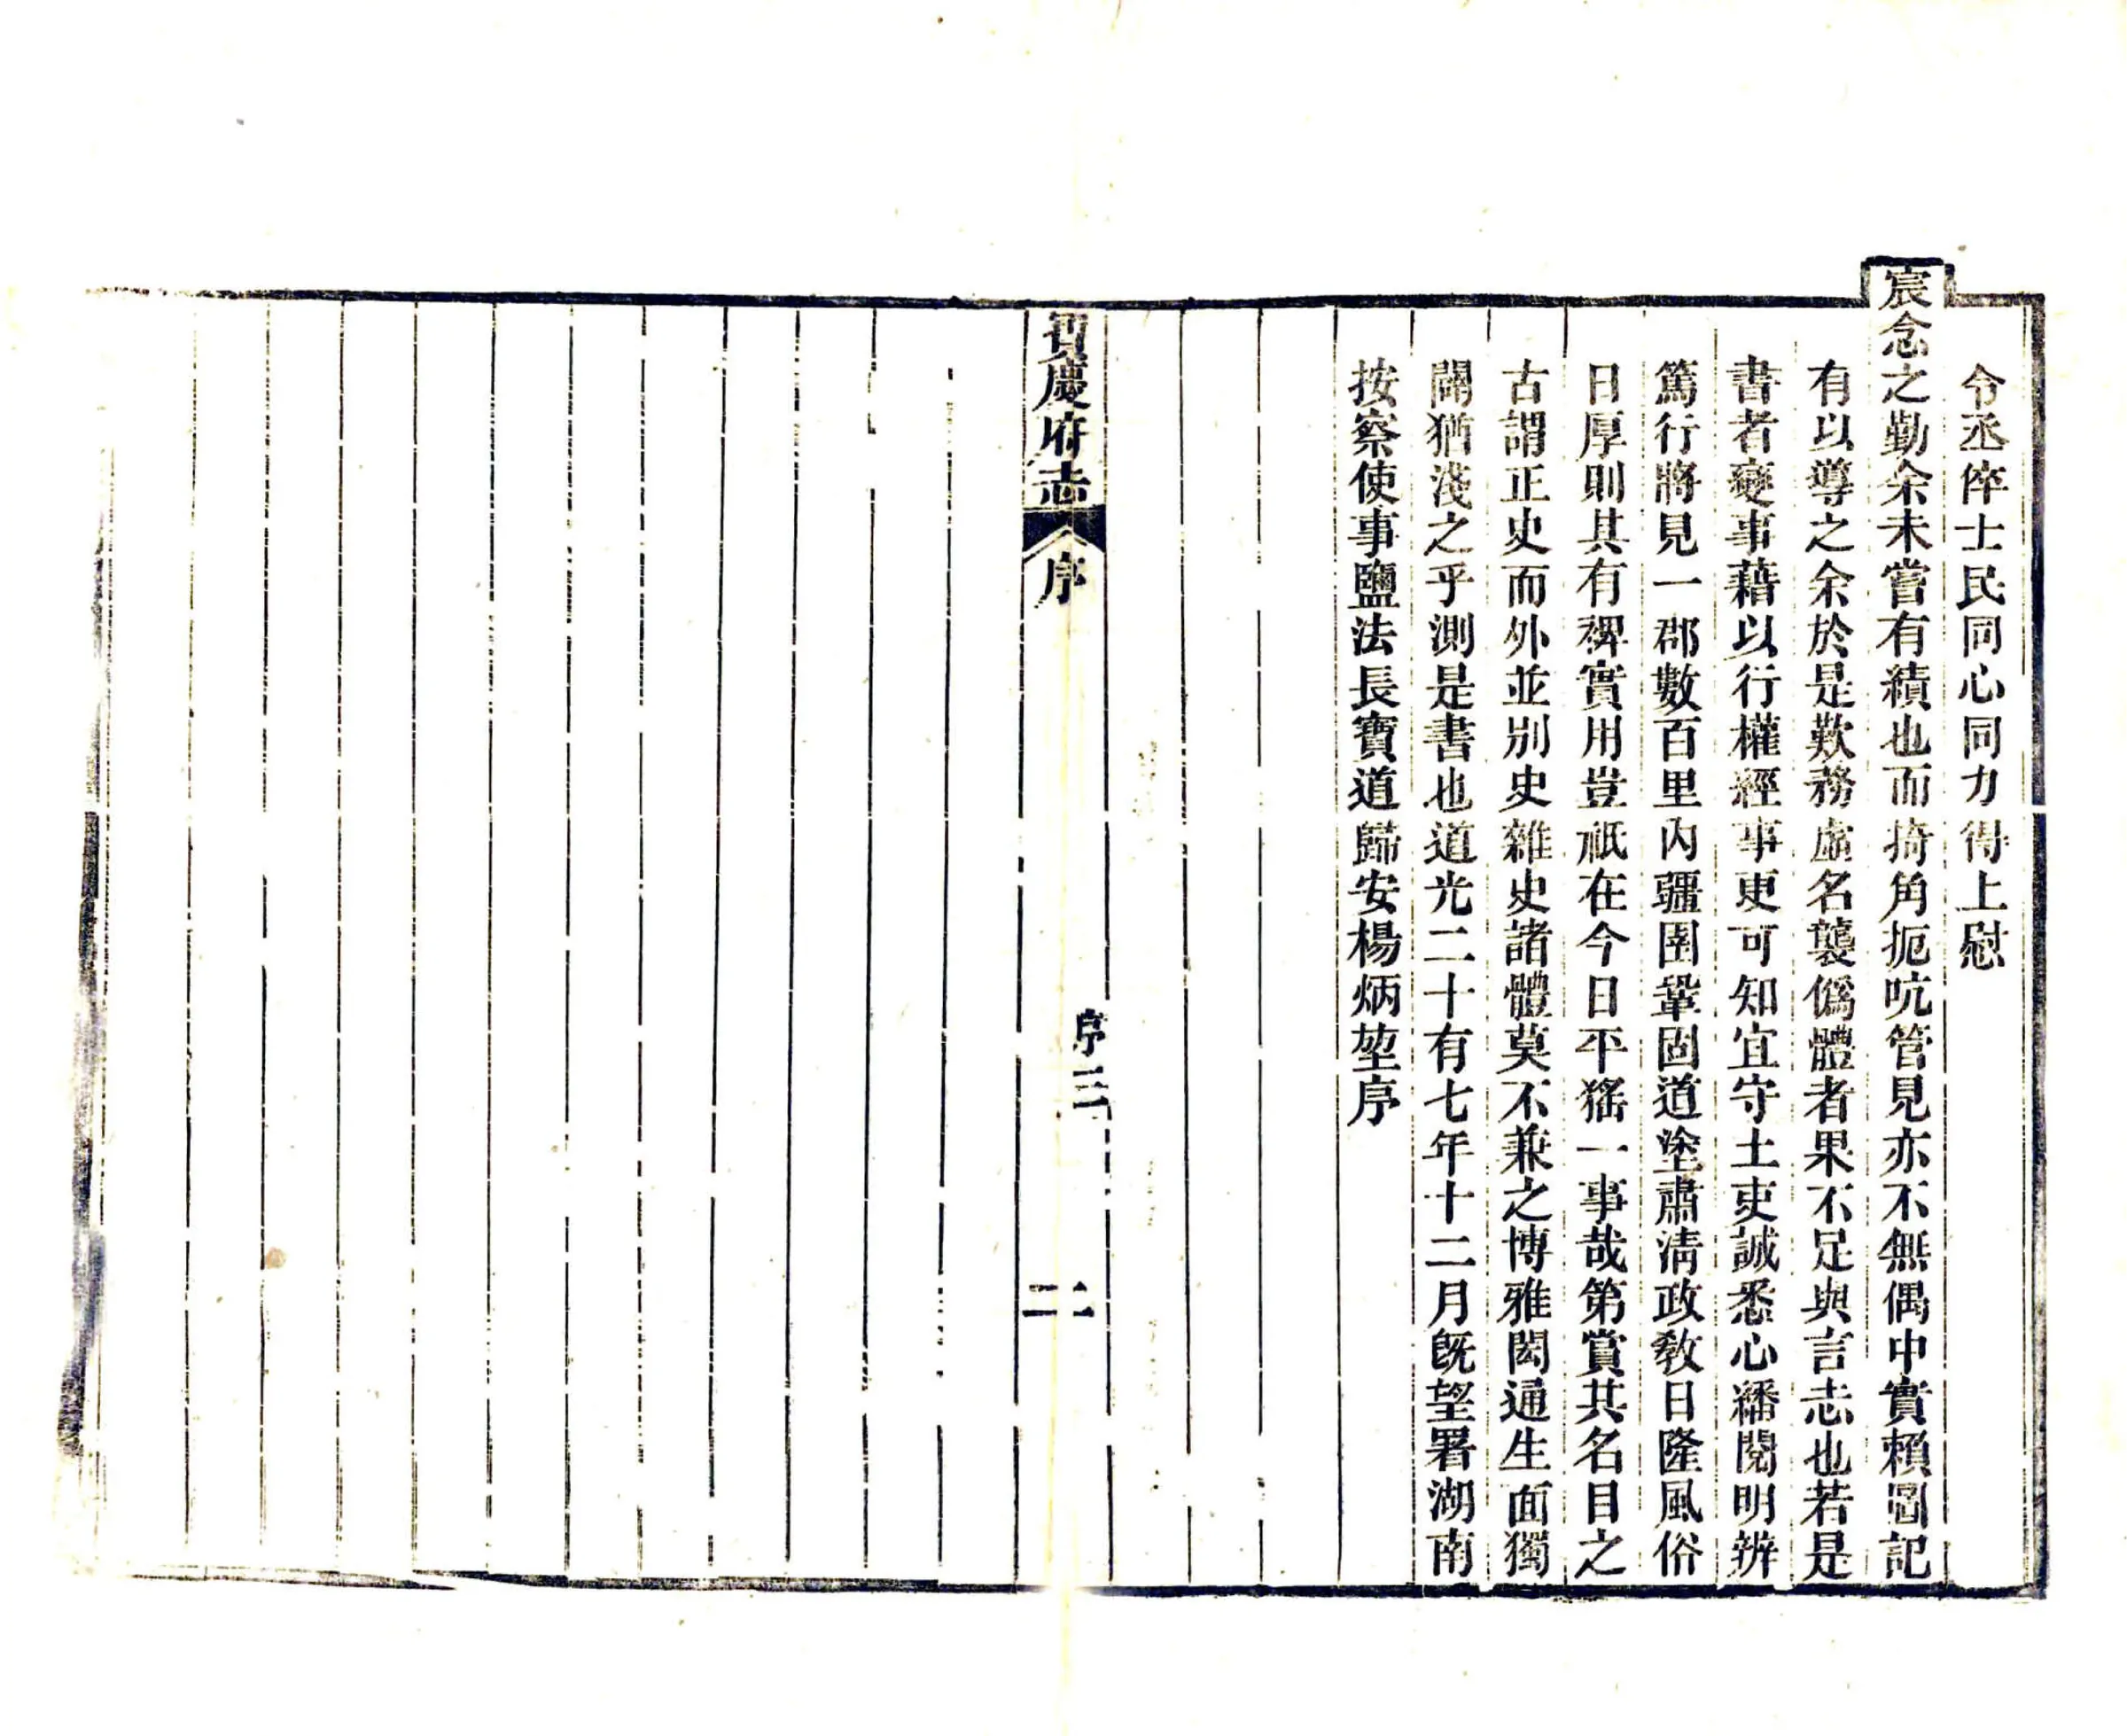 令丞倅士民同心同力得上慰
宸念之勤余未嘗有績也而掎角扼吭管見亦不無偶中實賴圖記
有以導之余於是歎務虛名襲僞體者果不足與言志也若是
書者變事藉以行權經事更可知宜守土吏誠悉心繙閱明辨
篤行將見一郡數百里內疆圉鞏固道塗肅清政敎日隆風俗
日厚則其有裨實用豈祇在今日平猺一事哉第賞其名目之
古謂正史而外並別史雜史諸體莫不兼之博雅閎通生面獨
闢猶淺之乎測是書也道光二十有七年十二月旣望署湖南
按察使事鹽法長寶道歸安楊炳堃序
寶慶府志
序
序三
二